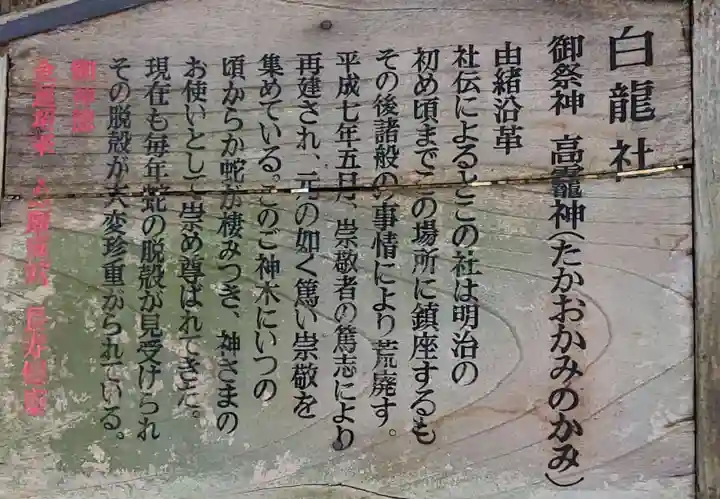 白龍社
御祭神 高龗神(たかおかみのかみ)
由緒沿革
社伝によるとこの社は明治の
初め頃までこの場所に鎮座するも
その後諸般の事情により荒廃す。
平成七年五月、崇敬者の篤志により
再建され、元の如く篤い崇敬を
集めている。このご神木にいつの
頃からか蛇が棲みつき、神さまの
お使いとして崇め尊ばれてきた。
現在も毎年蛇の脱殻が見受けられ
その脱殻が大変珍重がられている。
御神徳